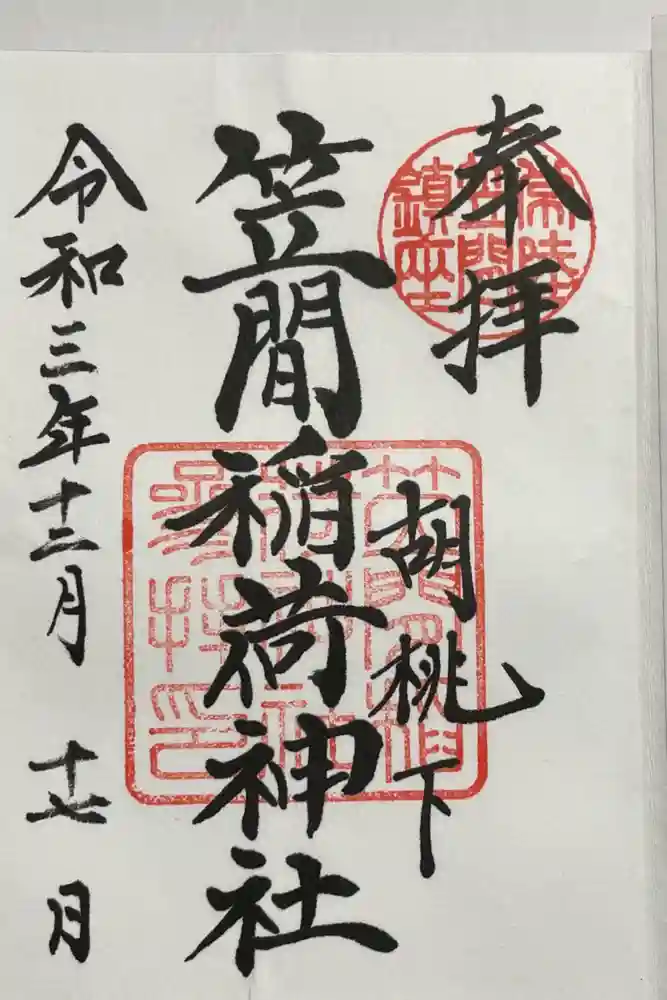 奉拝
常陸
笠間
鎮座
胡桃下
笠間稲荷神社
參拝印
令和三年十二月 十七日